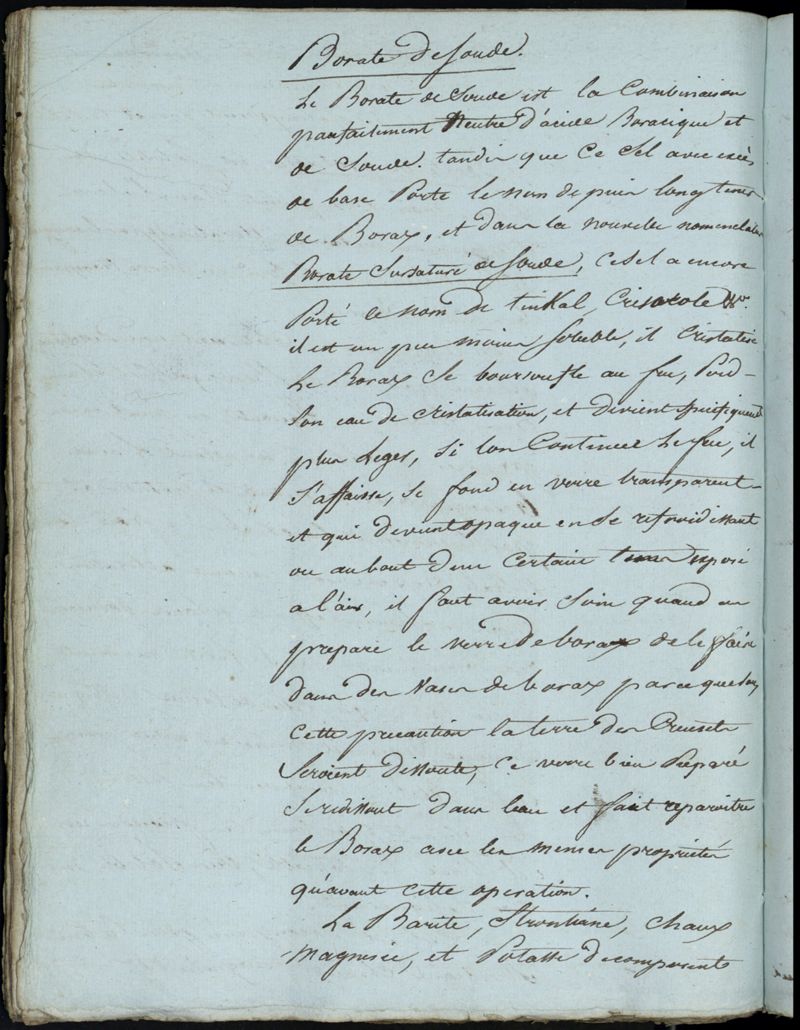 Borate de Soude.
Le Borate de Soude est la Combinaison
parfaitement Neutre d'acide Boracique et
de Soude. tandis que ce Sel avec excès
de base Porte le nom depuis longtems
de Borax, et dans la nouvelle nomenclature
Borate Sursaturé de Soude, ce Sel a encore
Porté le nom de tinKal, Crisocole &c.
il est un peu moins Soluble, il cristalise
Le Borax Se boursouffle au feu, Perd
Son eau de cristalisation, et devient Specifiquement
plus Leger, Si l'on Continue Le feu, il
S'affaisse, se fond en verre transparent
et qui devient opaque en Se refroidissant
ou au bout d'un certain tems exposé
a l'air, il faut avoir Soin quand on
prepare le verre de borax de le faire
dans des Vases de borax parce que Sans
Cette precaution la terre des Creusets
Seroient dissoute, Ce verre bien Preparé
Se redissout dans l'eau et fait reparoitre
le Borax avec les memes proprietés
qu'avant cette operation.
La Barite, Strontiane, chaux
magnesie, et Potasse decomposent